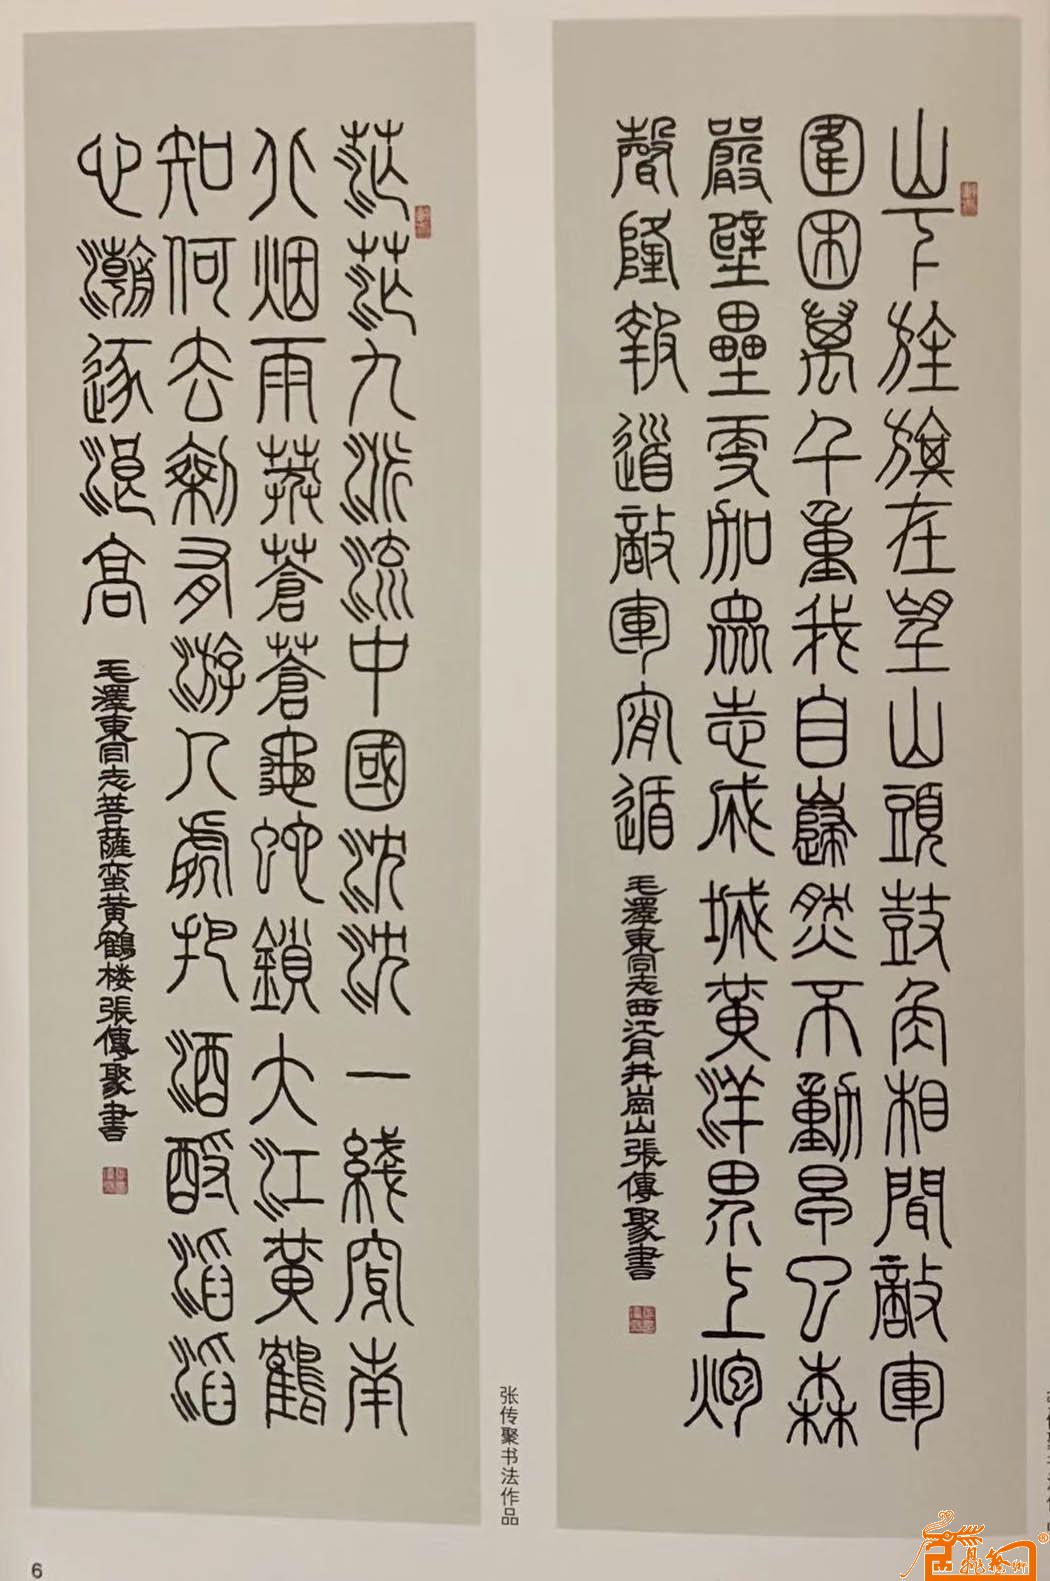 山下旌旗在望山頭鼓角相聞敵軍
圍困萬千重我自巋然不動早已森
嚴壁壘更加衆志成城黃洋界上炮
聲隆報道敵軍宵遁
毛澤東同志西江月井崗山張傳聚書
张传聚书法作品
茫茫九派流中國沈沈一綫穿南
北烟雨莽蒼蒼龜蛇鎖大江黃鶴
知何去剩有游人處把酒酹滔滔
心潮逐浪高
毛澤東同志菩薩蛮黄鶴楼張傳聚書
6